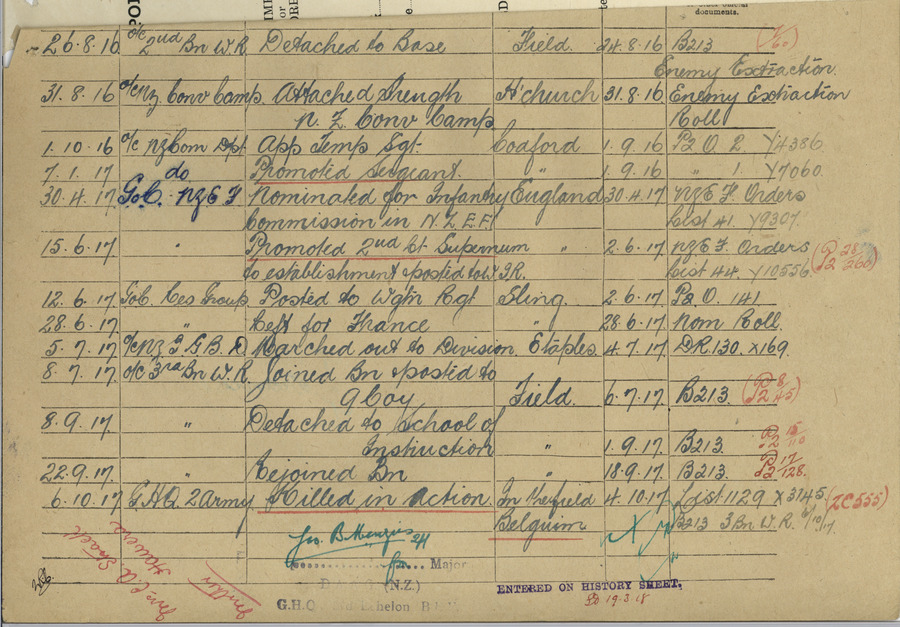 documents.
26.8.16 o/c 2nd Bn W.R. Detached to Base Field. 24.8.16 B213
Enemy Extraction.
31.8.16 o/c NZ. Conv Camp. Attached Strength H'church 31.8.16 Enemy Extraction
N.Z. Conv Camp Roll
1.10.16 o/c NZ Com Dpt App Temp Sgt. Codford 1.9.16 P2 O. 2. Y4386.
7.1.17 do Promoted Sergeant. " 1.9.16 " 1. Y7060.
30.4.17 G.O.C. NZEF Nominated for Infantry England 30.4.17 NZEF Orders
Commission in N.Z.E.F. List 41. Y9307.
15.6.17 " Promoted 2nd Lt Supernum " 2.6.17 NZEF. Orders
to establishment & posted to W.I.R. List 44. Y10556
12.6.17 Gob. Res Group Posted to Wgtn Rgt Sling. 2.6.17 P2 O. 141.
28.6.17 " Left for France " 28.6.17 Nom Roll.
5.7.17 o/c NZ I.G.B.D. Marched out to Division. Etaples. 4.7.17. DR.130. X169.
8.7.17. o/c 3rd Bn W.R. Joined Bn & posted to
9 Coy Field. 6.7.17 B213.
8.9.17. " Detached to School of
Instruction " 1.9.17 B213.
22.9.17. " Rejoined Bn " 18.9.17 B213. P2 17/128.
6.10.17 G.H.Q. 2 Army Killed in Action. In the field 4.10.17 List 1129 X3145 (ZC555)
Belgium B213 3 Bn W.R.
Major
(N.Z.)
G.H.Q. Echelon
ENTERED ON HISTORY SHEET.
19.3.18